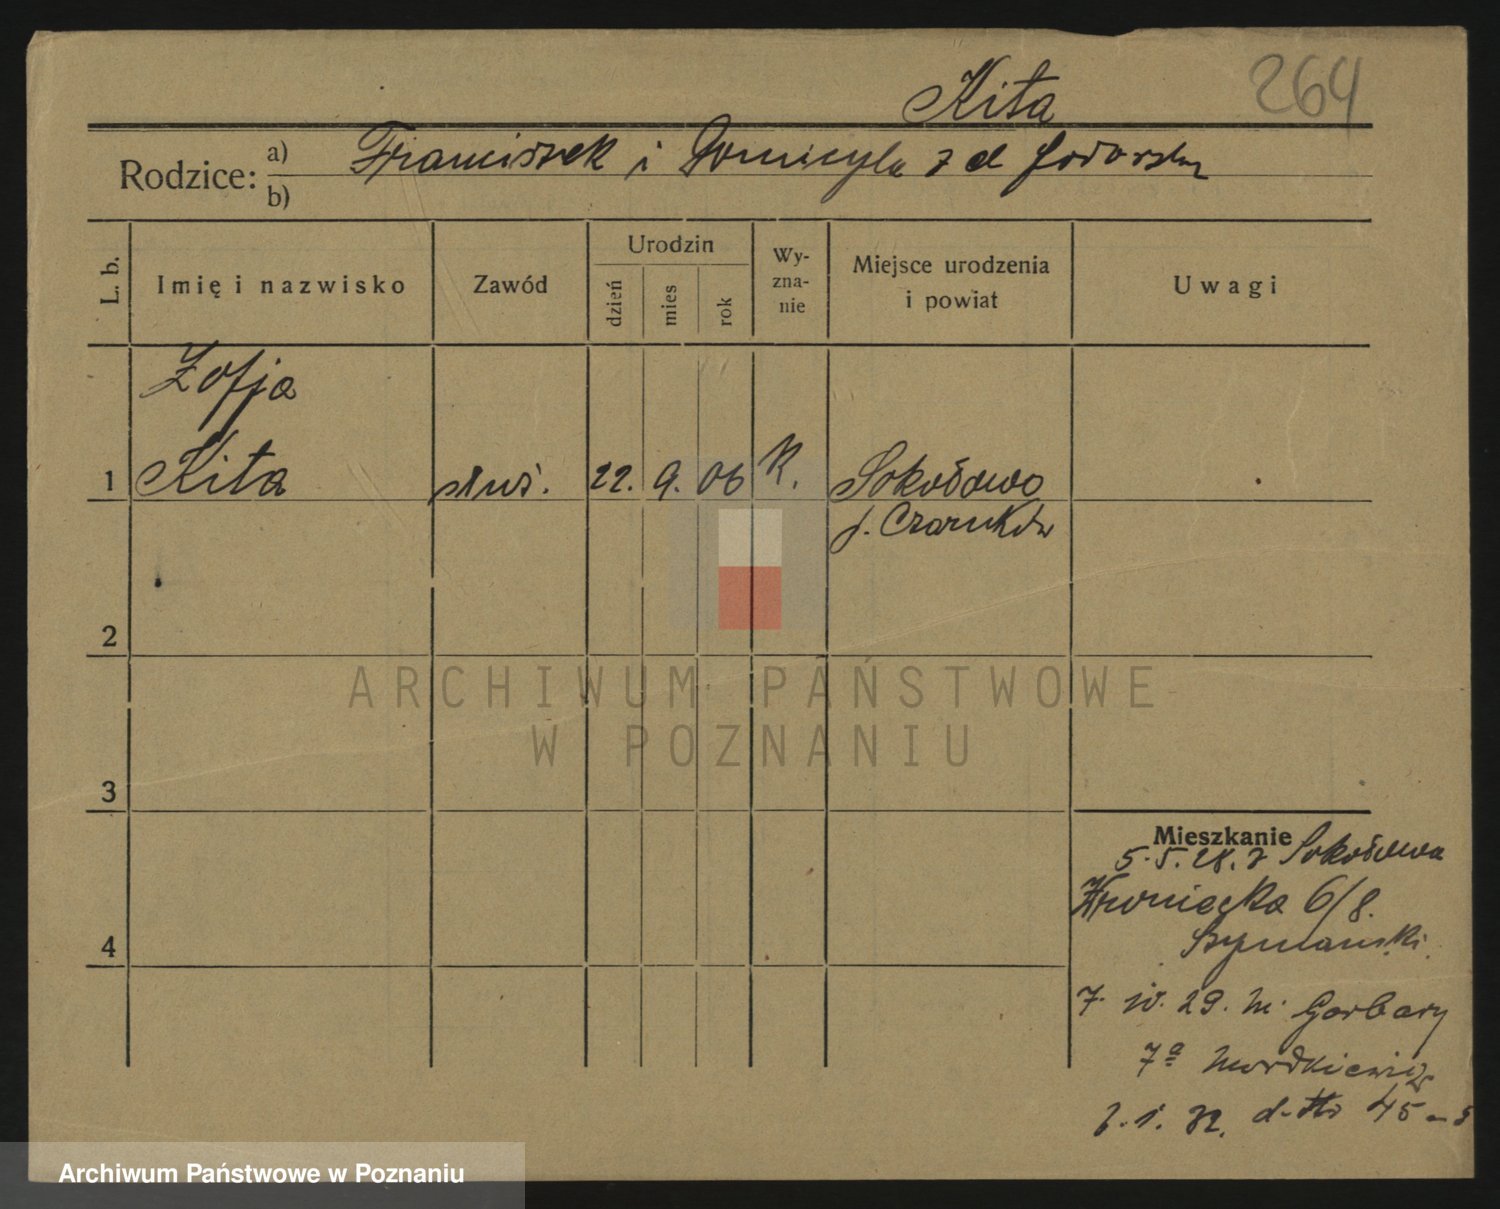 Kita
264
Rodzice: a) Franciszek i
b)
L. b.
Imię i nazwisko
Zawód
Urodzin
dzień
mies
rok
Wy-
zna-
nie
Miejsce urodzenia
i powiat
Uwagi
Zofja
1 Kita służ. 22. 9. 06 K. Sokołowo
p. Czarnków
2
3
4
Mieszkanie
5.5.28. z Sokołowa
6/8.
Szymański.
7. 29. Garbary
7a
1. 32. d-tto 45
ARCHIWUM PAŃSTWOWE
W POZNANIU
Archiwum Państwowe w Poznaniu